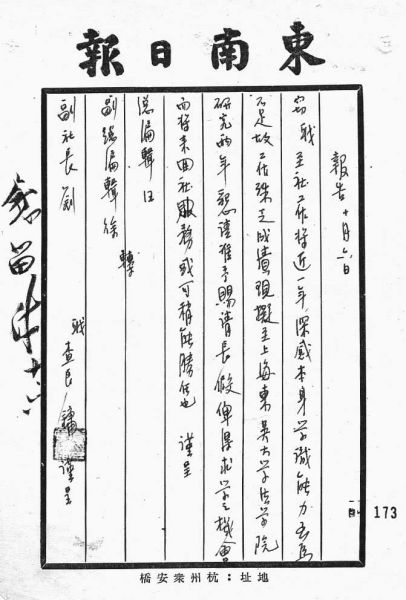 東南日報
報告 十月六日
窃職至社工作將近一年,深感本身学識能力至爲
不足故工作殊乏成績現擬至上海東吳大学法学院
研究兩年懇請准予賜請長假俾得求学之機會
而將來回社服務或可稍能勝任也 謹呈
總編輯汪
副總編輯徐 轉
副社長劉
職查良鏞謹呈
173
地址:杭州衆安橋